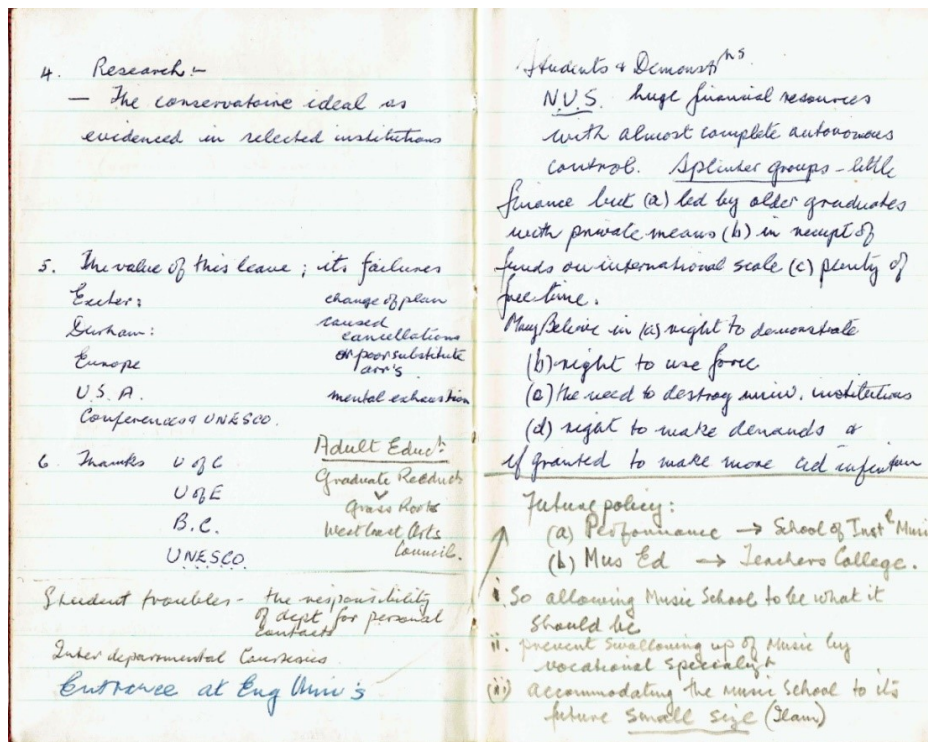 4. Research:-
— The conservatoire ideal as
evidenced in selected institutions
5. The value of this leave ; its failures
Exeter: change of plan
Durham: caused cancellations
Europe or poor substitute arr's.
U.S.A. mental exhaustion
Conferences & UNESCO.
6. Thanks U of C
U of E
B.C.
UNESCO.
Adult Educn
Graduate
Grass Roots
West Coast Arts
Council.
Student troubles - the responsibility
of dept for personal
contacts
Inter departmental Courtesies.
Entrance at Eng Univ's
Students & Demonstrns.
N.U.S. huge financial resources
with almost complete autonomous
control. Splinter groups - little
finance but (a) led by older graduates
with private means (b) in receipt of
funds on international scale (c) plenty of
free time.
Many Believe in (a) right to demonstrate
(b) right to use force
(c) the need to destroy univ. institutions
(d) right to make demands &
if granted to make more ad infinitum
Future policy:
(a) Performance → School of Instl Music
(b) Mus Ed → Teachers College.
i. So allowing Music School to be what it
should be
ii. prevent swallowing up of Music by
vocational specialist
(iii) accommodating the Music School to its
future small size (Ilam)